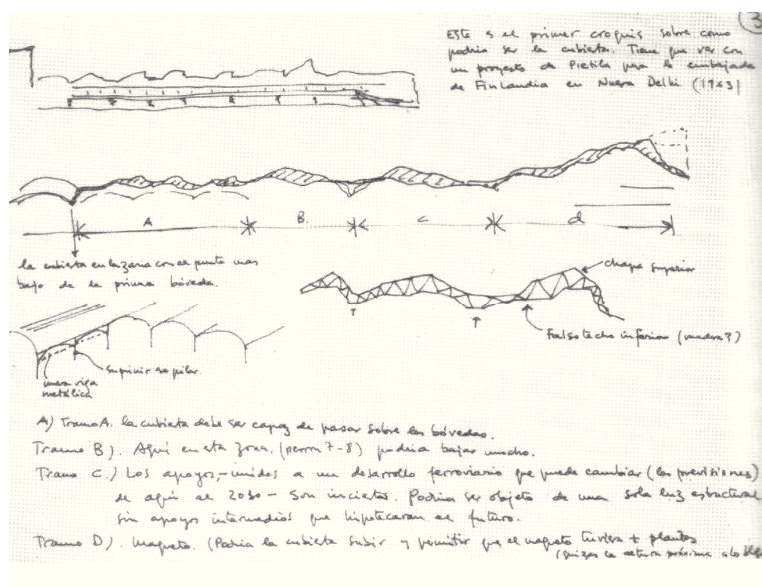 3
Este es el primer croquis sobre como
podria ser la cubierta. Tiene que ver con
un proyecto de Pietila para la embajada
de Finlandia en Nueva Delhi (1963)
A B. C. d
la cubierta enlazaria con el punto mas
bajo de la primera bóveda.
chapa superior
Falso techo inferior (madera?)
suprimir ese pilar
nueva viga
metálica
A) Tramo A. la cubierta debe ser capaz de pasar sobre las bóvedas.
Tramo B). Aqui en esta zona, (7-8) podria bajar mucho.
Tramo C.) Los apoyos,-unidos a un desarrollo ferroviario que puede cambiar (las previsiones)
de aqui al 2030 - Son inciertos. Podria ser objeto de una sola luz estructural
sin apoyos intermedios que hipotecaran el futuro.
Tramo D). Maqueto. (Podria la cubierta subir y permitir que el maqueto tuviera + plantas
(quizas la altura próxima a